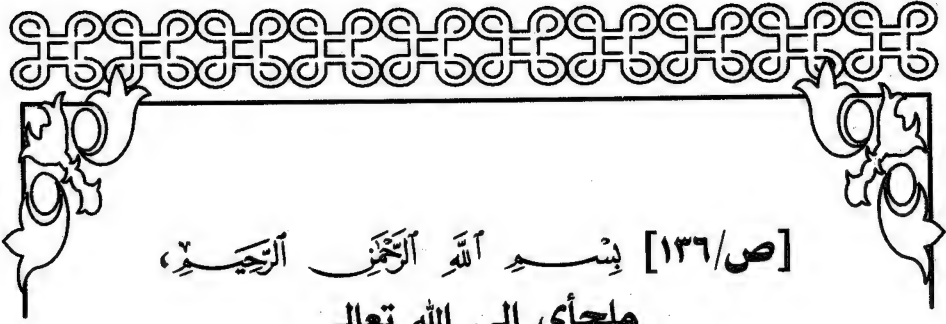 [ص/١٣٦] بِسْمِ ٱللَّهِ ٱلرَّحْمَٰنِ ٱلرَّحِيمِ،
ملجأي إلى الله تعالى